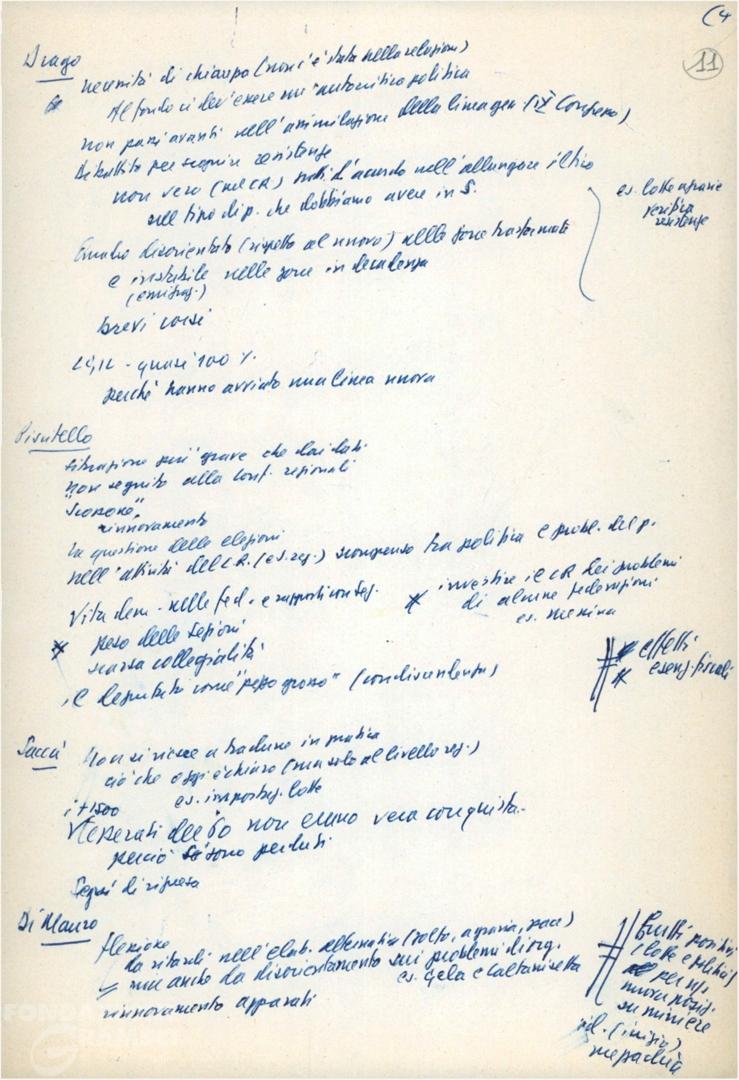 (4
11
Drago
necessità di chiarezza (non c'è stata nella relazione)
Al fondo ci dev'essere un'autocritica politica
non passi avanti nell'assimilazione della linea gen. (IX Congresso)
Dibattito per scoprire resistenze
non vero (nel CR) tutti d'accordo nell'allungare il tiro
sul tipo di p. che dobbiamo avere in S.
es. lotte agrarie
verifica
resistenze
disorientato (rispetto al nuovo) nelle zone trasformate
e instabile nelle zone in decadenza
(emigraz.)
Brevi corsi
CGIL - quasi 100%
perché hanno avviato una linea nuova
Pisutello
situazione più grave che dai dati
non seguito alla conf. regionali
rinnovamento
la questione delle elezioni
nell'attività del C.R. (es. reg.) scompenso tra politica e probl. del p.
Vita dem. nelle fed. e rapporti con seg.
* investire il CR dei problemi
di alcune federazioni
es. Messina
* peso delle sezioni
scarsa collegialità
il deputato come "pezzo grosso" (condiscendenza)
effetti
esenz. fiscali
Saccà
Non si riesce a tradurre in pratica
ciò che oggi è chiaro (ma solo al livello reg.)
es. impostaz. lotte
i +1500
tesserati del 60 non erano vera conquista.
perciò si sono perduti
Segni di ripresa
Di Mauro
flessione
da ritardi nell'elab. alternativa (zolfo, agraria, pace)
ma anche da disorientamento sui problemi di org.
es. Gela e Caltanissetta
rinnovamento apparati
Frutti positivi
(lotte e politici)
per ns.
nuova posiz.
su miniere
id. (inizio)
mezzadria
FONDAZIONE
GRAMSCI